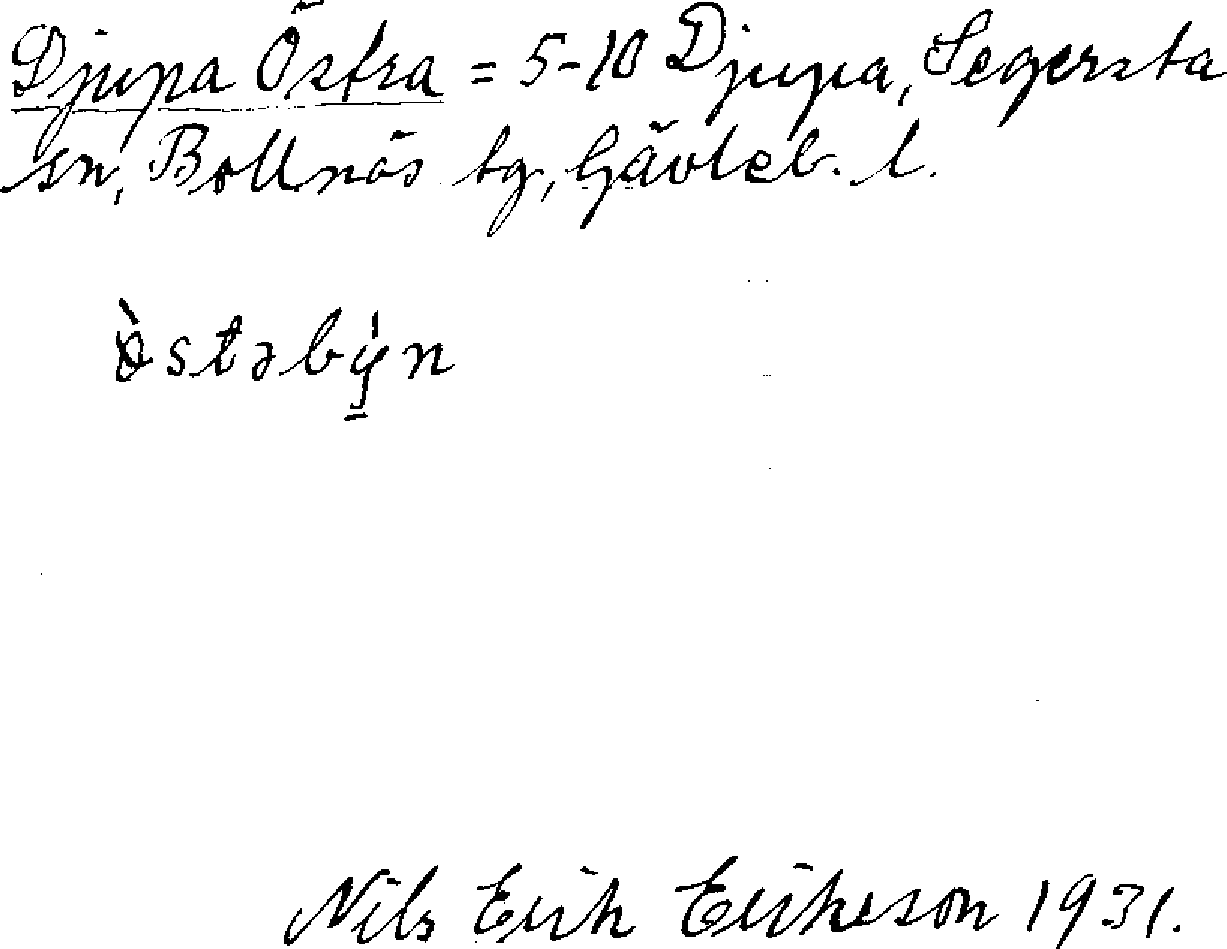 Djupa Östra = 5-10 Djupa, Segersta
sn, Bollnäs tg, Gävleb. l.
òstəbý̱n
Nils Erik Erikeson 1931.